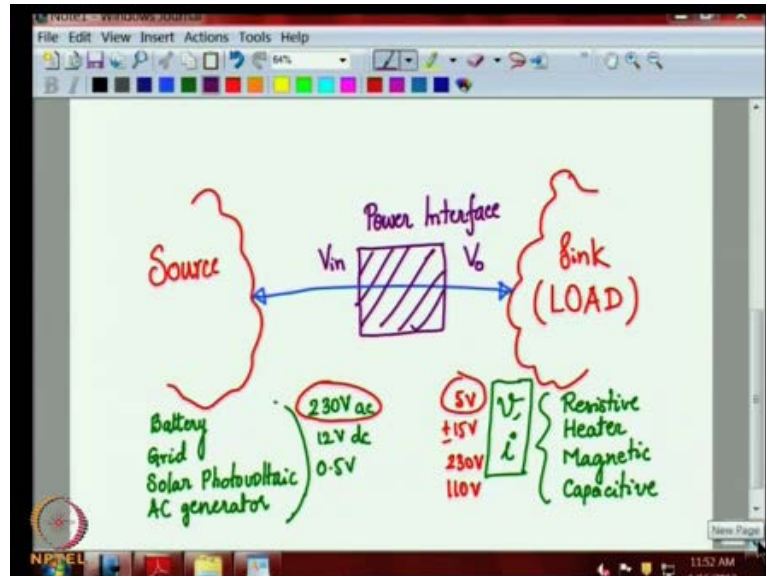 Note1 - Windows Journal
File Edit View Insert Actions Tools Help
64%
B I
Power Interface
Source
Vin
Vo
Sink
(LOAD)
Battery
Grid
Solar Photovoltaic
AC generator
230V ac
12V dc
0.5V
5V
±15V
230V
110V
v
i
Resistive
Heater
Magnetic
Capacitive
New Page
NPTEL
11:52 AM